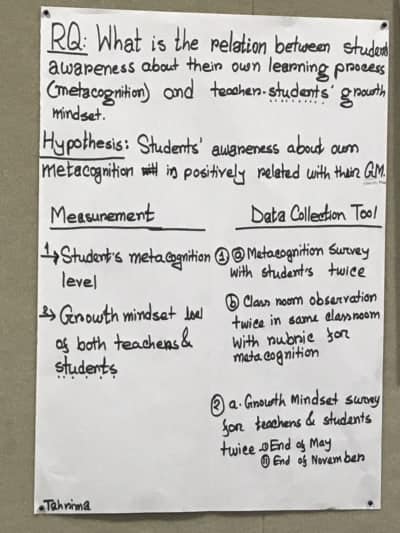 RQ: What is the relation between students
awareness about their own learning process
(metacognition) and teacher-students' growth
mindset.
Hypothesis: Students' awareness about own
metacognition is positively related with their G.M.
Measurement
1→ Student's metacognition
level
2→ Growth mindset level
of both teachers &
students
Data Collection Tool
① ⓐ Metacognition survey
with student's twice
ⓑ Class room observation
twice in same classroom
with rubric for
metacognition
② a. Growth Mindset survey
for teachers & students
twice ⓘ End of May
ⓘⓘ End of November
Tahrima